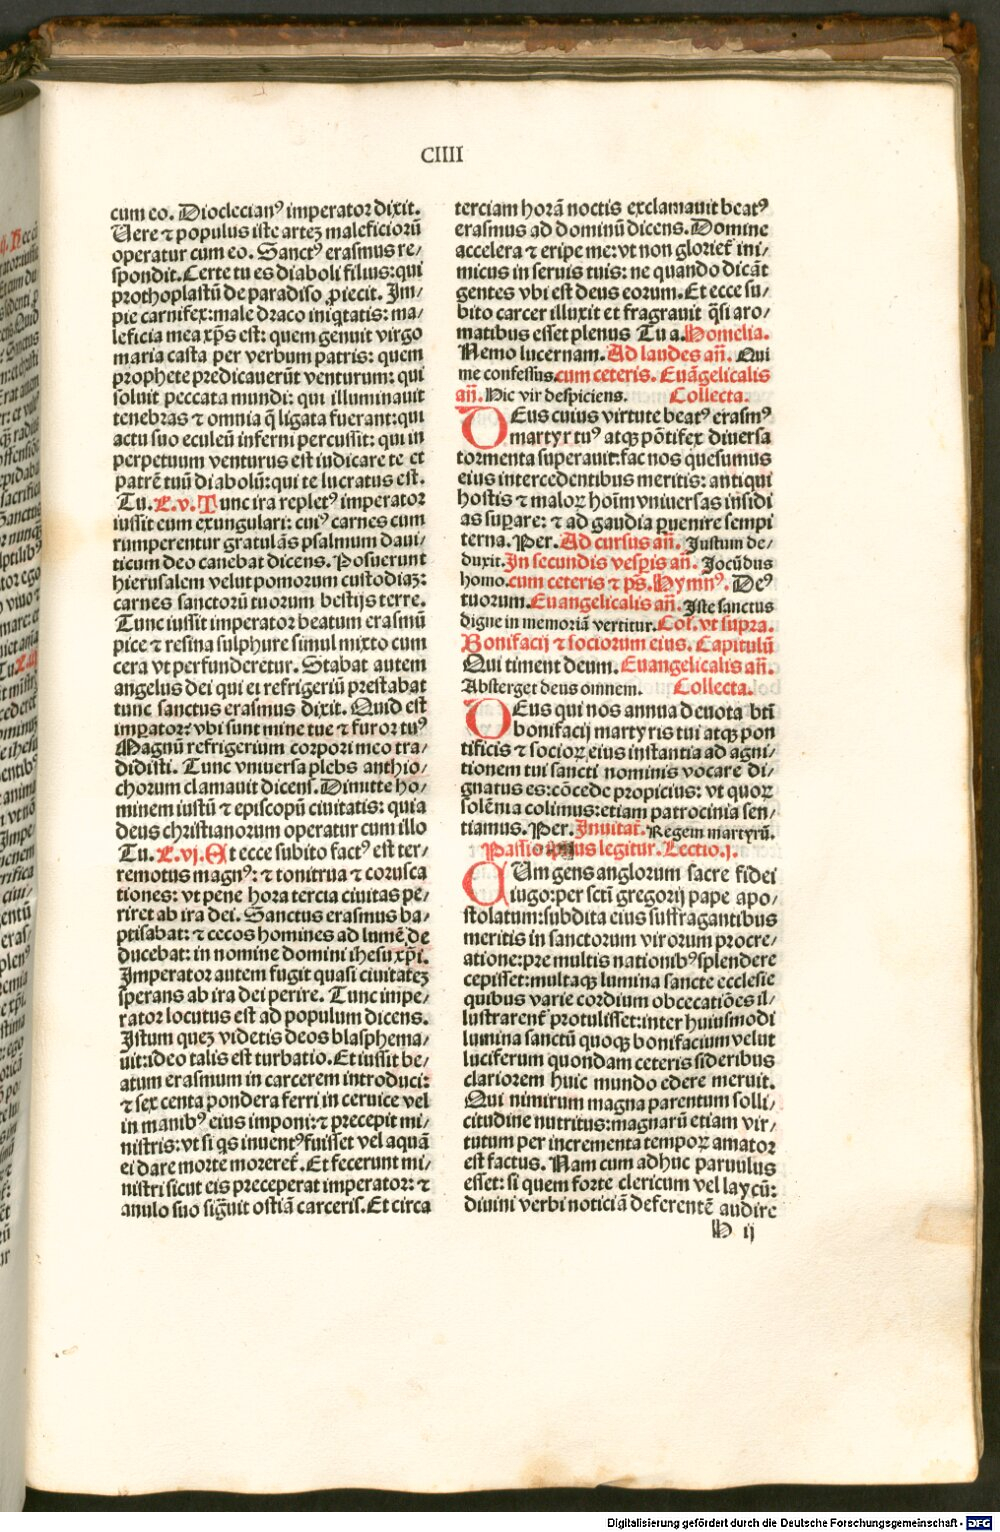 CIIII
cum eo. Dioclecianꝰ imperator dixit.
Uere ⁊ populus iste artez maleficiorū
operatur cum eo. Sanctꝰ erasmus re/
spondit. Certe tu es diaboli filius: qui
prothoplastū de paradiso ꝓiecit. Im/
pie carnifex: male draco iniq̄tatis: ma/
leficia mea xp̄s est: quem genuit virgo
maria casta per verbum patris: quem
prophete predicauerūt venturum: qui
soluit peccata mundi: qui illuminauit
tenebras ⁊ omnia q̄ ligata fuerant: qui
actu suo eculeū inferni percussit: qui in
perpetuum venturus est iudicare te et
patrē tuū diabolū: qui te lucratus est.
Tu. L. v. Tunc ira repletꝰ imperator
iussit eum exungulari: cuiꝰ carnes cum
rumperentur gratulās psalmum daui/
ticum deo canebat dicens. Posuerunt
hierusalem velut pomorum custodiaz:
carnes sanctorū tuorum bestijs terre.
Tunc iussit imperator beatum erasmū
pice ⁊ resina sulphure simul mixto cum
cera vt perfunderetur. Stabat autem
angelus dei qui ei refrigeriū prestabat
tunc sanctus erasmus dixit. Quid est
imꝑator: vbi sunt mine tue ⁊ furor tuꝰ
Magnū refrigerium corpori meo tra/
didisti. Tunc vniuersa plebs anthio/
chorum clamauit dicens. Dimitte ho/
minem iustū ⁊ episcopū ciuitatis: quia
deus christianorum operatur cum illo
Tu. L. vj. Et ecce subito factꝰ est ter/
remotus magnꝰ: ⁊ tonitrua ⁊ corusca
tiones: vt pene hora tercia ciuitas pe/
riret ab ira dei. Sanctus erasmus ba/
ptisabat: ⁊ cecos homines ad lumē de
ducebat: in nomine domini ihesu xp̄i.
Imperator autem fugit quasi ciuitatez
sperans ab ira dei perire. Tunc impe/
rator locutus est ad populum dicens.
Istum quez videtis deos blasphema/
uit: ideo talis est turbatio. Et iussit be/
atum erasmum in carcerem introduci:
⁊ sex centa pondera ferri in ceruice vel
in manibꝰ eius imponi: ⁊ precepit mi/
nistris: vt si q̄s inuentꝰ fuisset vel aquā
ei dare morte moreret᷑. Et fecerunt mi/
nistri sicut eis preceperat imperator: ⁊
anulo suo sig̅uit ostiā carceris. Et circa
terciam horā noctis exclamauit beatꝰ
erasmus ad dominū dicens. Domine
accelera ⁊ eripe me: vt non gloriet᷑ ini/
micus in seruis tuis: ne quando dicāt
gentes vbi est deus eorum. Et ecce su/
bito carcer illuxit et fragrauit q̄si aro/
matibus esset plenus Tu a. Homelia.
Nemo lucernam. Ad laudes an̄. Qui
me confessus. cum ceteris. Euāgelicalis
an̄. Hic vir despiciens. Collecta.
DEus cuius virtute beatꝰ erasmꝰ
martyr tuꝰ atqꝫ pōtifex diuersa
tormenta superauit: fac nos quesumus
eius intercedentibus meritis: antiqui
hostis ⁊ maloꝝ hoīm vniuersas insidi
as suꝑare: ⁊ ad gaudia ꝑuenire sempi
terna. Per. Ad cursus an̄. Justum de/
duxit. In secundis vesꝑis an̄. Jocūdus
homo. cum ceteris ⁊ ps̄. Hymnꝰ. Deꝰ
tuorum. Euangelicalis an̄. Iste sanctus
digne in memoriā vertitur. Col̄. vt supra.
Bonifacij ⁊ sociorum eius. Capitulū
Qui timent deum. Euangelicalis an̄.
Absterget deus omnem. Collecta.
DEus qui nos annua deuota bt̄i
bonifacij martyris tui atqꝫ pon
tificis ⁊ socioꝝ eius instantia ad agni/
tionem tui sancti nominis vocare di/
gnatus es: cōcede propicius: vt quoꝝ
solēnia colimus: etiam patrocinia sen/
tiamus. Per. Inuitat᷑. Regem martyrū.
Passio legitur. Lectio. j.
CUm gens anglorum sacre fidei
iugo: per sct̄i gregorij pape apo/
stolatum: subdita eius suffragantibus
meritis in sanctorum virorum procre/
atione: pre multis nationibꝰ splendere
cepisset: multaqꝫ lumina sancte ecclesie
quibus varie cordium obcecatiōes il/
lustrarent᷑ protulisset: inter huiusmodi
lumina sanctū quoqꝫ bonifacium velut
luciferum quondam ceteris sideribus
clariorem huic mundo edere meruit.
Qui nimirum magna parentum solli/
citudine nutritus: magnarū etiam vir/
tutum per incrementa tempoꝝ amator
est factus. Nam cum adhuc paruulus
esset: si quem forte clericum vel laycū:
diuini verbi noticiā deferentē audire
H ij
Digitalisierung gefördert durch die Deutsche Forschungsgemeinschaft - DFG